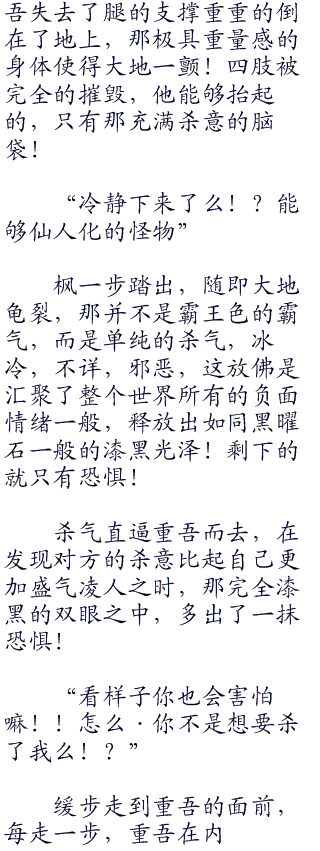 吾失去了腿的支撑重重的倒
在了地上，那极具重量感的
身体使得大地一颤！四肢被
完全的摧毁，他能够抬起
的，只有那充满杀意的脑
袋！
“冷静下来了么！？能
够仙人化的怪物”
枫一步踏出，随即大地
龟裂，那并不是霸王色的霸
气，而是单纯的杀气，冰
冷，不详，邪恶，这放佛是
汇聚了整个世界所有的负面
情绪一般，释放出如同黑曜
石一般的漆黑光泽！剩下的
就只有恐惧！
杀气直逼重吾而去，在
发现对方的杀意比起自己更
加盛气凌人之时，那完全漆
黑的双眼之中，多出了一抹
恐惧！
“看样子你也会害怕
嘛！！怎么·你不是想要杀
了我么！？”
缓步走到重吾的面前，
每走一步，重吾在内